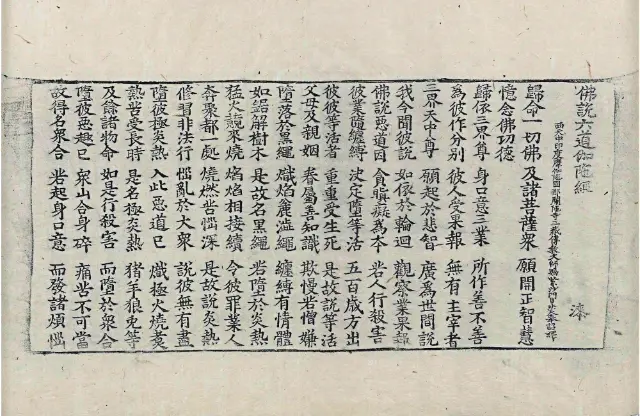 佛說六道伽陀經 漆
西天中印度摩伽陀國那爛陀寺三藏傳教大師賜紫沙門臣法天奉詔譯
歸命一切佛及諸菩薩衆 願開正智慧
憶念佛功德
歸依三界尊 身口意三業 所作善不善
爲彼作分別 彼人受果報 無有主宰者
三界天中尊 願起於悲智 廣爲世間說
我今聞彼說 如依於輪迴 觀察業果報
佛說惡道因 貪瞋癡爲本 若人行殺害
彼業薩纏縛 決定墮等活 五百歲方出
彼彼等活者 重重受生死 是故說等活
父母及親姻 眷屬善知識 欺慢若憎嫌
墮落於黑繩 熾焰麁澁繩 纏縛有情體
如鋸解樹木 是故名黑繩 若墮於炎熱
猛火競來燒 焰焰相接續 令彼罪業人
奔聚都一處 燒燃苦惱深 是故說炎熱
修習非法行 惱亂於大衆 說彼無有盡
墮彼極炎熱 入此惡道已 熾極火燒煮
熱苦受長時 是名極炎熱 猪羊狼兔等
及餘諸物命 如是行殺害 而墮於衆合
墮彼惡趣已 衆山合身碎 痛苦不可當
故得名衆合 若起身口意 而發諸煩惱